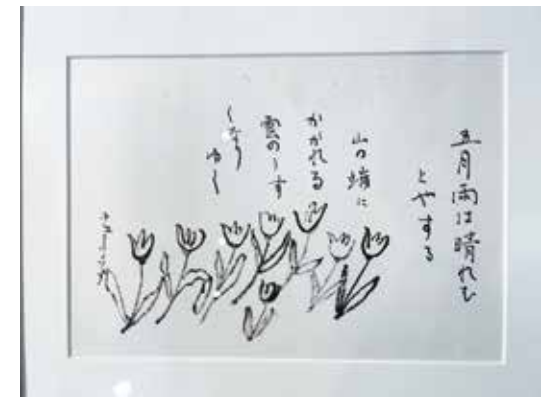 五月雨は晴れむ
とやする
山の端に
かかれる
雲のうす
くなり
ゆく